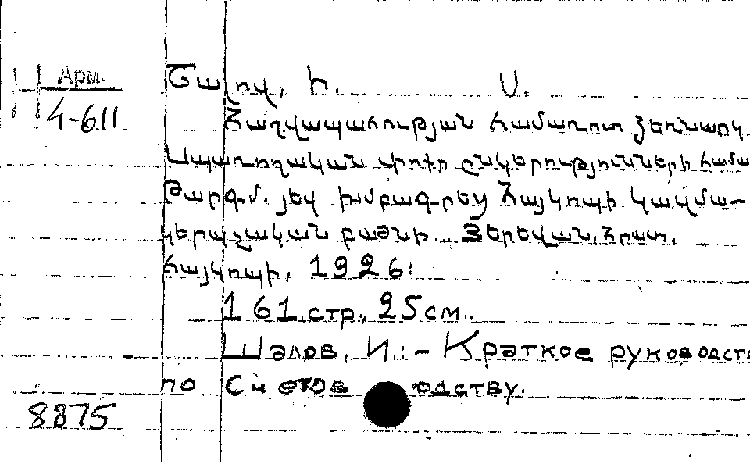 Арм.
4-611
Շալով, Ի. Ս.
Հաշվապահության համառոտ ձեռնարկ
Սպառողական փոքր ընկերությունների համա
Թարգմ. յեվ խմբագրեց Հայկոոպի կազմա-
կերպչական բաժնի. Յերեվան, հրատ.
Հայկոոպի, 1926։
161 стр. 25 см.
Шалов, И.:- Краткое руководст
по Счетов одству.
8875